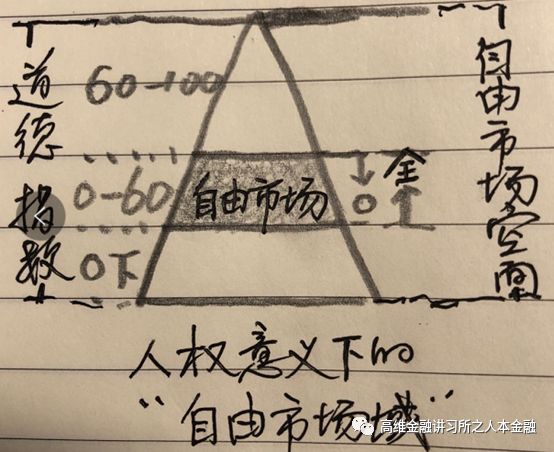 道德指数
60-100
0-60
0下
自由市场
0
全
自由市场空间
人权意义下的
“自由市场域”
高维金融讲习所之人本金融